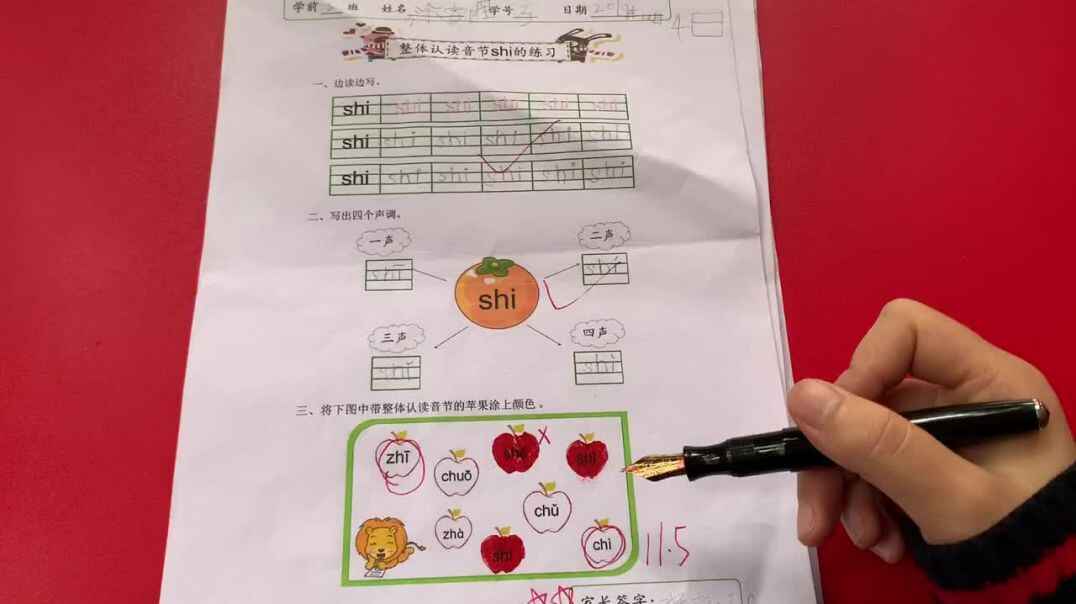 学前 班 姓名 学号 日期
整体认读音节shi的练习
一、边读边写。
shi shi shi shi shi shi
shi shi shi shi shi shi
shi shi shi shi shi shi
二、写出四个声调。
一声 二声
shī shí
shi
三声 四声
shǐ shì
三、将下图中带整体认读音节的苹果涂上颜色。
zhī chuō
chǔ
zhà shi chi
11.5
家长签字: